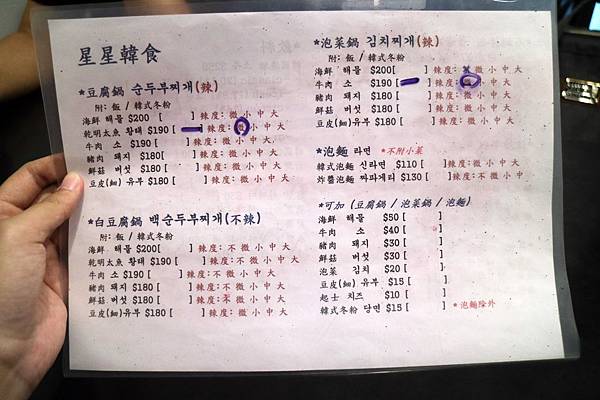 星星韓食
*豆腐鍋 순두부찌개(辣)
附: 飯 / 韓式冬粉
海鮮 해물 $200 [ ] 辣度: 微 小 中 大
乾明太魚 황태 $190 [ ] 辣度: 微 小 中 大
牛肉 소 $190 [ ] 辣度: 微 小 中 大
豬肉 돼지 $180[ ] 辣度: 微 小 中 大
鮮菇 버섯 $180[ ] 辣度: 微 小 中 大
豆皮(細) 유부 $180 [ ] 辣度: 微 小 中 大
*白豆腐鍋 백순두부찌개(不辣)
附: 飯 / 韓式冬粉
海鮮 해물 $200[ ] 辣度: 不 微 小 中 大
乾明太魚 황태 $190 [ ] 辣度: 不 微 小 中 大
牛肉 소 $190 [ ] 辣度: 不 微 小 中 大
豬肉 돼지 $180 [ ] 辣度: 不 微 小 中 大
鮮菇 버섯 $180 [ ] 辣度: 不 微 小 中 大
豆皮(細)유부 $180 [ ] 辣度: 不 微 小 中 大
*泡菜鍋 김치찌개(辣)
附: 飯 / 韓式冬粉
海鮮 해물 $200[ ] 辣度: 微 小 中 大
牛肉 소 $190 [ ] 辣度: 微 小 中 大
豬肉 돼지 $180 [ ] 辣度: 微 小 中 大
鮮菇 버섯 $180 [ ] 辣度: 微 小 中 大
豆皮(細)유부 $180[ ] 辣度: 微 小 中 大
*泡麵 라면 *不附小菜
韓式泡麵 신라면 $110[ ] 辣度: 微 小 中 大
炸醬泡麵 짜파게티 $130[ ]辣度: 不 微 小 中
*可加 (豆腐鍋 / 泡菜鍋 / 泡麵)
海鮮 해물 $50 [ ]
牛肉 소 $40 [ ]
豬肉 돼지 $30 [ ]
鮮菇 버섯 $30 [ ]
泡菜 김치 $20 [ ]
豆皮(細)유부 $15 [ ]
起士 치즈 $10 [ ]
韓式冬粉 당면 $15 [ ] *泡麵除外